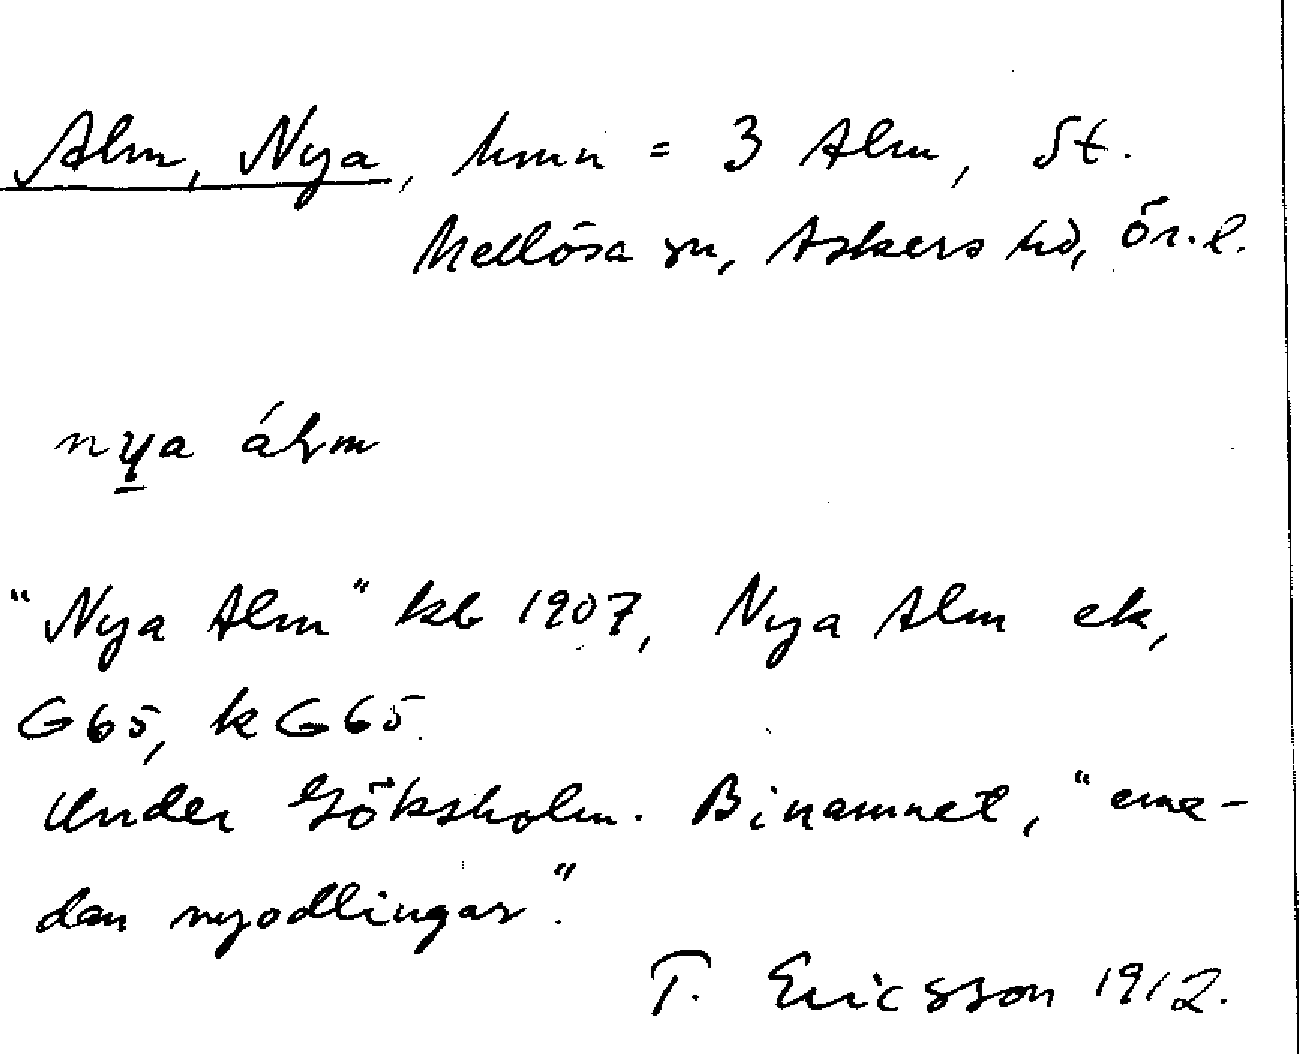 Alm, Nya, hmn = 3 Alm, St.
Mellösa sn, Askers hd, Ör.l.
nya álm
"Nya Alm" kb 1907, Nya Alm ek,
G65, kG65
Under Göksholm. Binamnet, "eme-
dan nyodlingar".
T. Ericsson 1912.